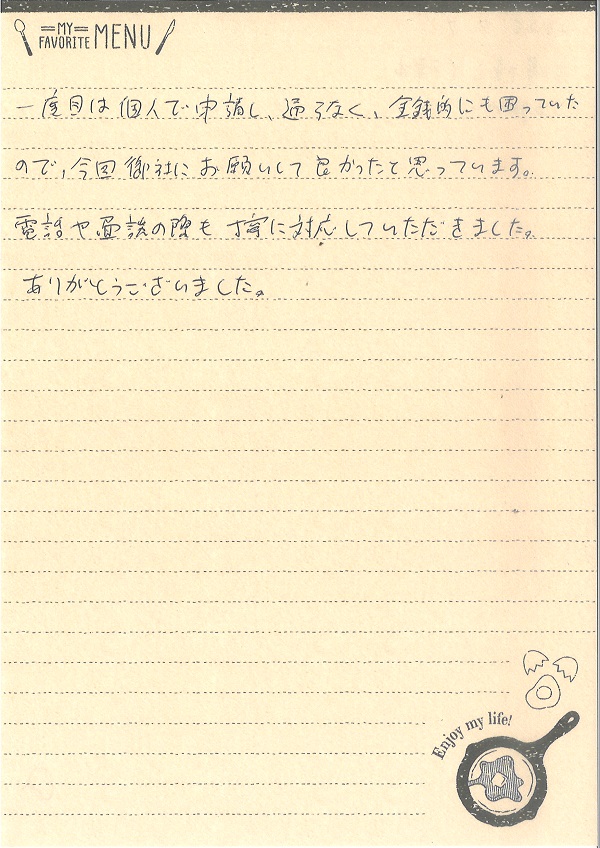 MY
FAVORITE MENU
一度目は個人で申請し、通らなく、金銭的にも困っていた
ので、今回御社にお願いして良かったと思っています。
電話や面談の際も丁寧に対応していただきました。
ありがとうございました。
Enjoy my life!